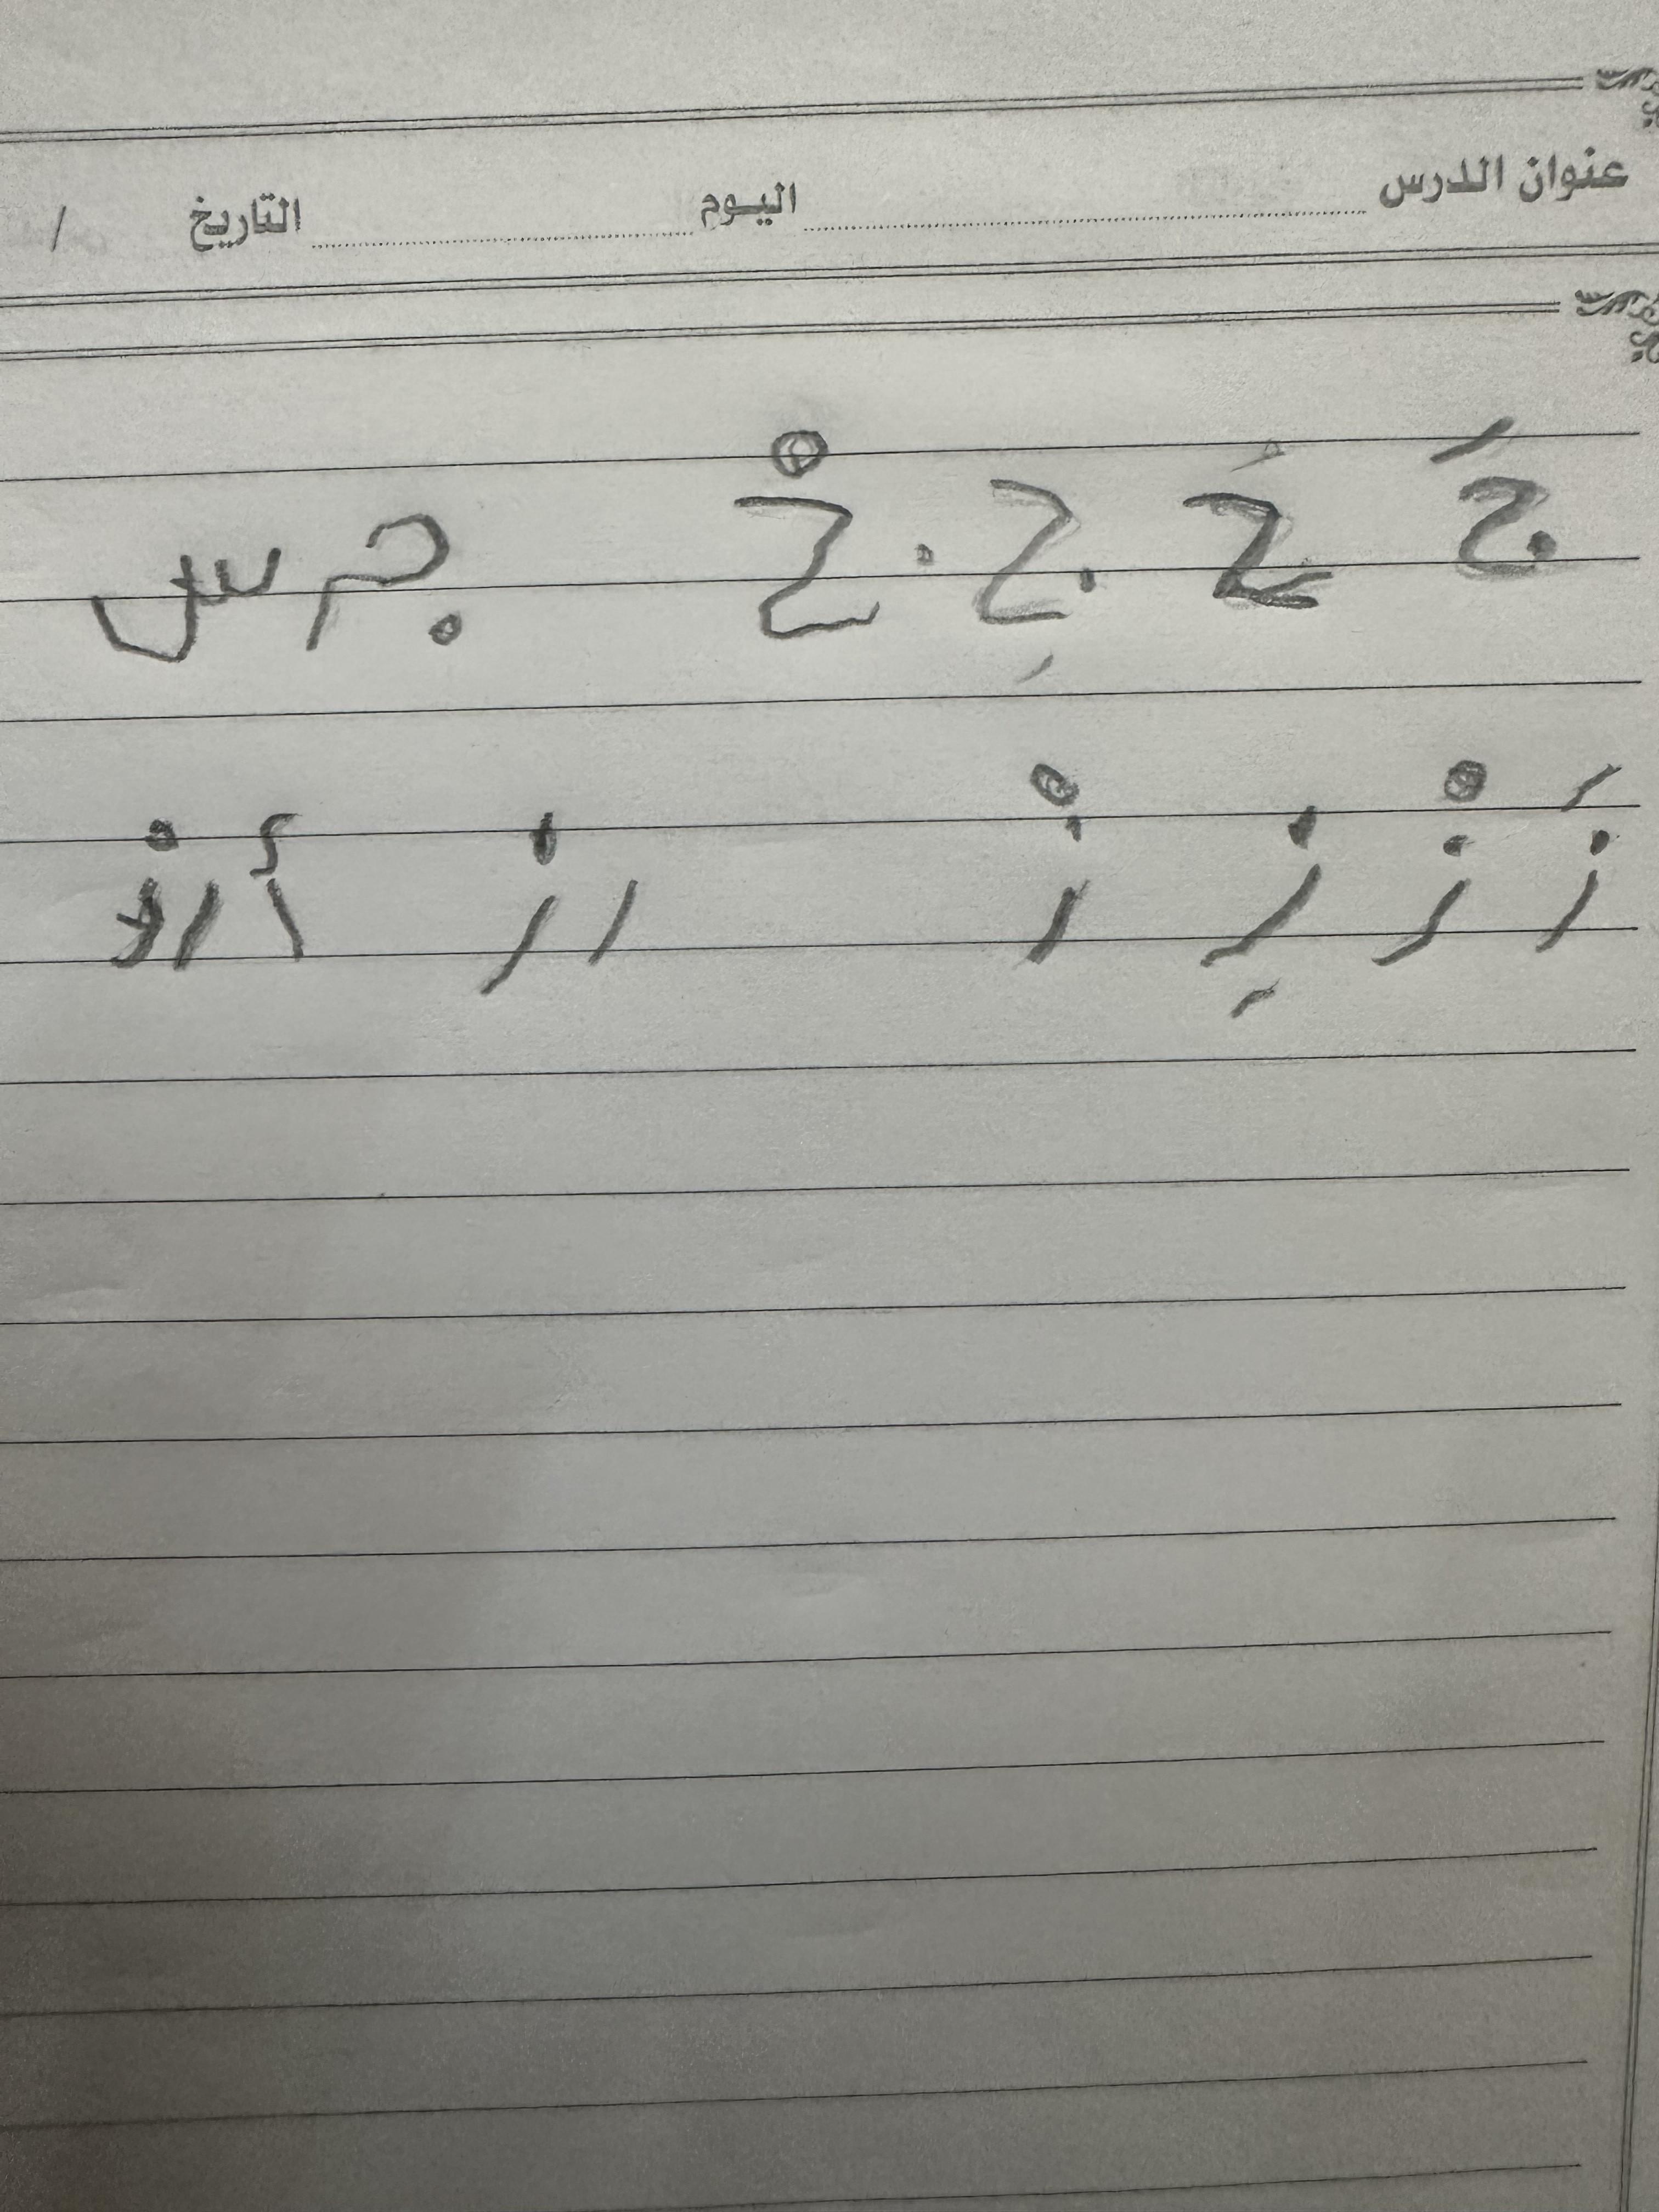 عنوان الدرس اليوم التاريخ /
جَ جُ جِ جْ جرس
زَ زْ زِ زْ از